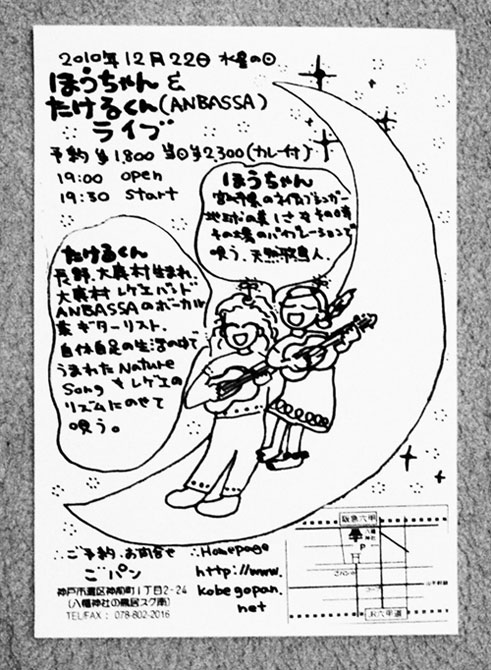 2010年12月22日 水曜の日
ほうちゃん &
たけるくん(ANBASSA)
ライブ
予約 ¥1,800 当日¥2,300(カレー付)
19:00 open
19:30 start
ほうちゃん
地球の美しさを その時
その場のバイブレーションで
唄う. 天然歌鳥人.
たけるくん
長野. 大鹿村生まれ.
大鹿村レゲエバンド
ANBASSAのボーカル
兼ギターリスト.
自休自足の生活の中で
うまれた Nature
Song を レゲエの
リズムにのせて
唄う。
∴ご予約.お問合せ
ごパン
神戸市灘区神前町1丁目2-24
(八幡神社の鳥居スグ南)
TEL/FAX : 078-802-2016
∴Homepage
http://www.
kobegopan.
net
阪急六甲
八幡
神社
P
ごパン
山手幹線
JR六甲道